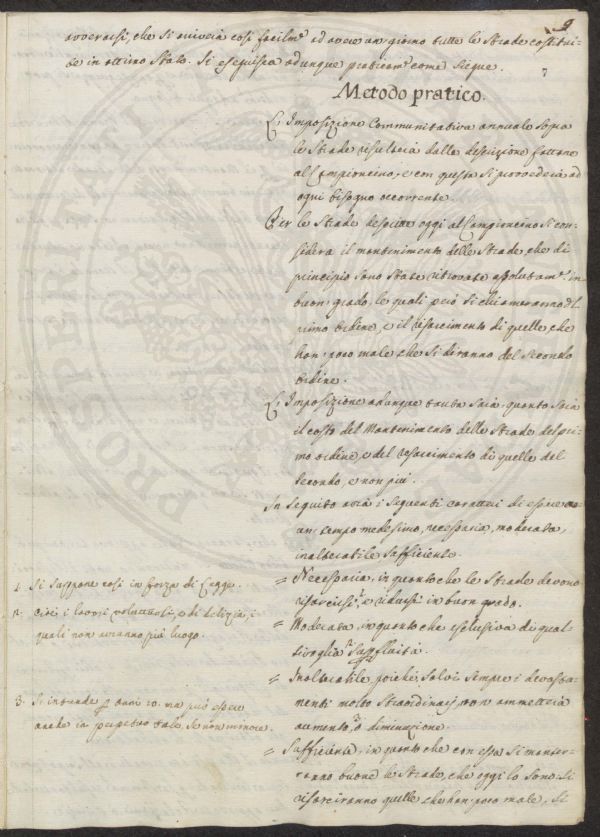 9
avverarsi, che si arriverà così facilm.te ad avere un giorno tutte le Strade costitui-
te in ottimo Stato. Si eseguisca adunque praticam.te come siegue.
7
Metodo pratico.
L'Imposizione Communitativa annuale sopra
le Strade risulterà dalla descrizione fattane
al Campioncino, e con questa si provvederà ad
ogni bisogno occorrente.
Per le Strade descritte oggi al Campioncino si con-
sidera il mantenimento delle Strade, che di
principio sono state ritrovate assolutam.te in
buon grado, le quali però si chiameranno del
primo ordine, e il risarcimento di quelle che
han poco male che si diranno del Secondo
ordine.
L'Imposizione adunque tanta sarà quanto sarà
il costo del Mantenimento delle Strade del pri-
mo ordine, e del risarcimento di quelle del
secondo, e non più.
In seguito avrà i seguenti caratteri di essere
un tempo medesimo, necessaria, moderata,
inalterabile sufficiente.
= Necessaria, in quanto che le Strade devono
risarcirsi, e ridursi in buon grado.
= Moderata, in quanto che esclusiva di qual-
sivoglia superfluità.
= Inalterabile, poichè, salvi sempre i devasta-
menti molto straordinarj, non ammetterà
aumento, o diminuzione.
= Sufficiente, in quanto che con essa si manter-
ranno buone le Strade, che oggi lo sono. Si
risarciranno quelle che han poco male. Si
1. Si suppone così in forza di Legge.
2. Cioè i lavori voluttuosi, e di delizia, i
quali non avranno più luogo.
3. Si intende p anni 10. ma può essere
anche in perpetuo tale, se non minore.